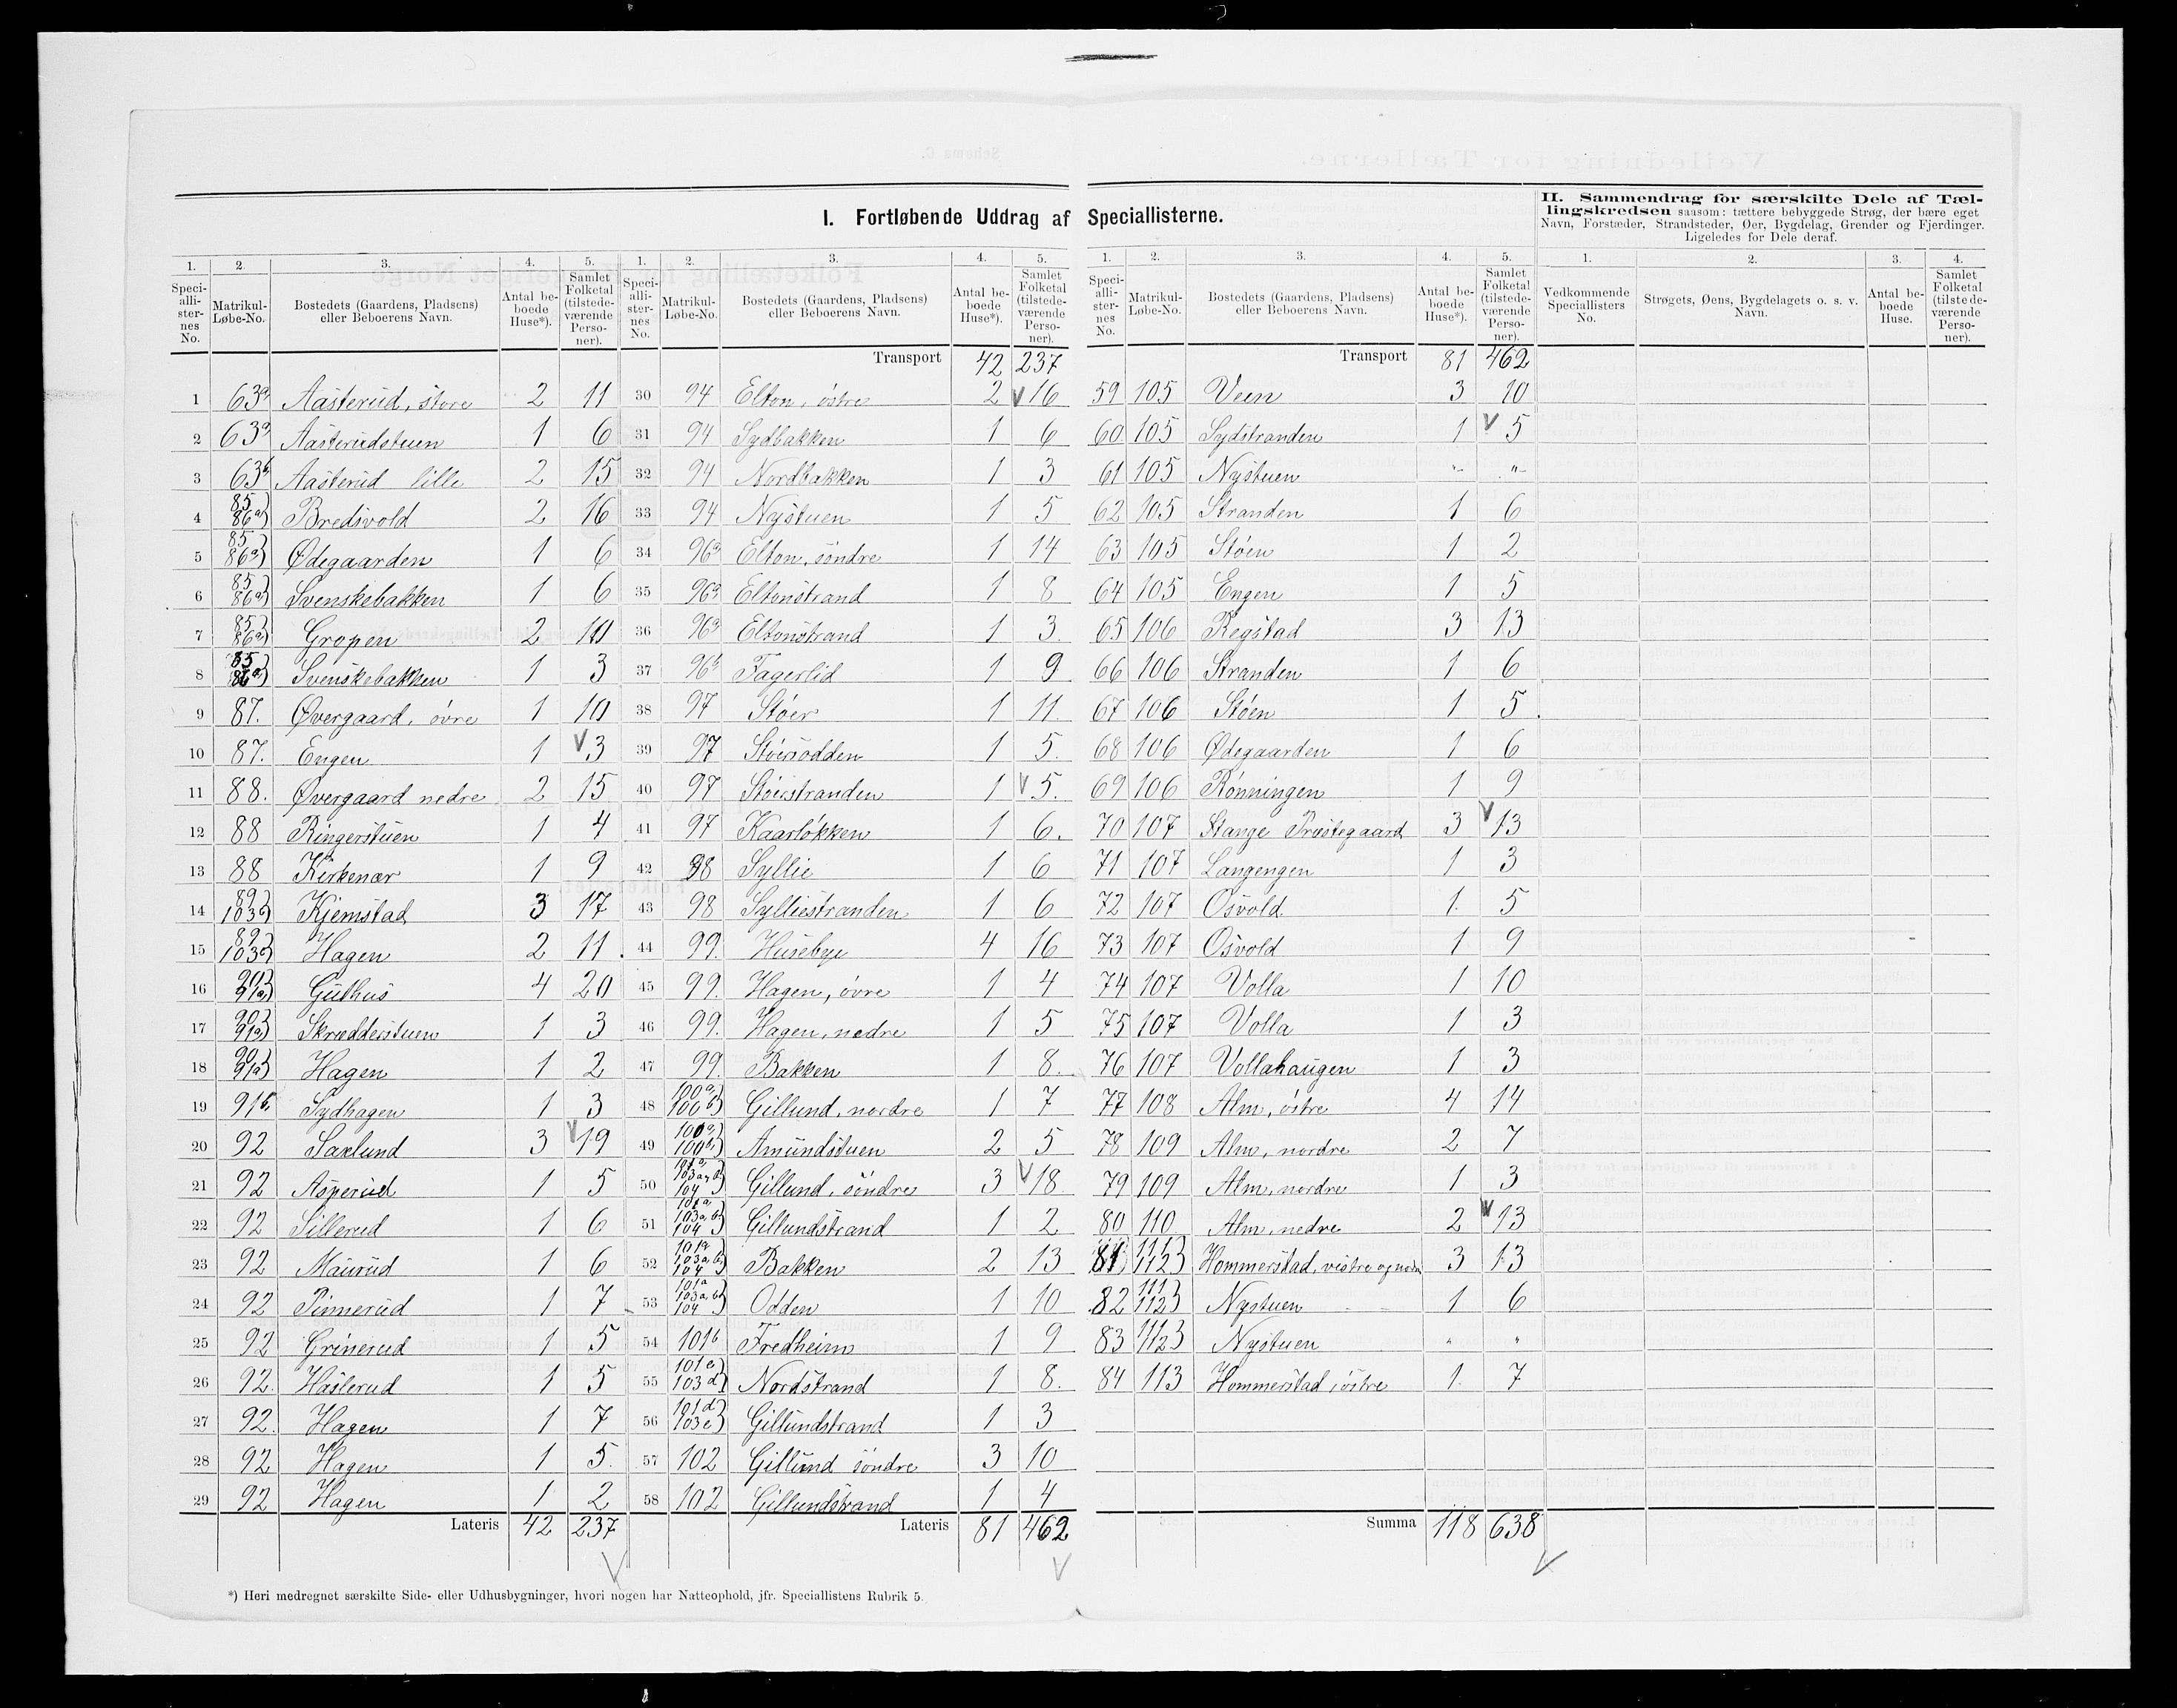 I. Fortløbende Uddrag af Speciallisterne.
II. Sammendrag for særskilte Dele af Tællingskredsen saasom: tættere bebyggede Strøg, der bære eget
Navn, Forstæder, Strandsteder, Øer, Bygdelag, Grender og Fjerdinger.
Ligeledes for Dele deraf.
1. 2. 3. 4. 5. 1. 2. 3. 4. 5. 1. 2. 3. 4. 5. 1. 2. 3. 4.
Speciallisternes No. Matrikul-Løbe-No. Bostedets (Gaardens, Pladsens) eller Beboerens Navn. Antal beboede Huse*). Samlet Folketal (tilstedeværende Personer).
Speciallisternes No. Matrikul-Løbe-No. Bostedets (Gaardens, Pladsens) eller Beboerens Navn. Antal beboede Huse*). Samlet Folketal (tilstedeværende Personer).
Speciallisternes No. Matrikul-Løbe-No. Bostedets (Gaardens, Pladsens) eller Beboerens Navn. Antal beboede Huse*). Samlet Folketal (tilstedeværende Personer).
Vedkommende Speciallisters No. Strøgets, Øens, Bygdelagets o. s. v. Navn. Antal beboede Huse. Samlet Folketal (tilstedeværende Personer).
1 63a Aasterud, store 2 11
2 63a Aasterudstuen 1 6
3 63b Aasterud lille 2 15
4 85 86a) Bredsvold 2 16
5 85 86a) Ødegaarden 1 6
6 85 86a) Svenskebakken 1 6
7 85 86a) Gropen 2 10
8 85 86a) Svenskebakken 1 3
9 87. Øvergaard, övre 1 10
10 87. Engen 1 3
11 88. Øvergaard nedre 2 15
12 88 Ringerstuen 1 4
13 88 Kirkenær 1 9
14 89 103c) Kjemstad 3 17
15 89 103c) Hagen 2 11
16 90 91a) Guthus 4 20
17 90 91a) Skrædderstuen 1 3
18 90 91a) Hagen 1 2
19 91b Sydhagen 1 3
20 92 Saxlund 3 19
21 92 Asperud 1 5
22 92 Sillerud 1 6
23 92 Maurud 1 6
24 92 Pinnerud 1 7
25 92 Grinerud 1 5
26 92. Haslerud 1 5
27 92. Hagen 1 7
28 92 Hagen 1 5.
29 92 Hagen 1 2
Lateris 42 237
Transport 42 237
30 94 Elton, östre 2 16
31 94 Sydbakken 1 6
32 94 Nordbakken 1 3
33 94 Nystuen 1 5
34 96a Elton, söndre 1 14
35 96a Eltonstrand 1 8
36 96a Eltonstrand 1 3
37 96b Fagerlid 1 9
38 97 Stöer 1 11
39 97 Stöersodden 1 5.
40 97 Stöerstranden 1 5.
41 97 Kaarlökken 1 6.
42 98 Syllie 1 6
43 98 Sylliestranden 1 6
44 99. Husebye 4 16
45 99. Hagen, övre 1 4
46 99. Hagen, nedre 1 5
47 99. Bakken 1 8.
48 100a, 100b) Gillund, nordre 1 7
49 100a, 100b) Amundstuen 2 5
50 101a 103a,b) 104 Gillund, söndre 3 18
51 101a 103a,b) 104 Gillundstrand 1 2
52 101a 103a,b) 104 Bakken 2 13
53 101a 103a,b) 104 Odden 1 10
54 101b Fredheim 1 9
55 101c) 103d) Nordstrand 1 8.
56 101d 103e) Gillundstrand 1 3
57 102 Gillund söndre 3 10
58 102 Gillundstrand 1 4
Lateris 81 462
Transport 81 462
59 105 Veen 3 10
60 105 Sydstranden 1 5
61 105 Nystuen "- "-
62 105 Stranden 1 6
63 105 Stöen 1 2
64 105 Engen 1 5
65 106 Regstad 3 13
66 106 Stranden 1 6
67 106 Stöen 1 5.
68 106 Ødegaarden 1 6
69 106 Rönningen 1 9
70 107 Stange Præstegaard 3 13
71 107 Langengen 1 3
72 107 Osvold 1. 5
73 107 Osvold 1 9
74 107 Volla 1 10
75 107 Volla 1 3
76 107 Vollahaugen 1 3
77 108 Alm, östre 4 14
78 109 Alm, nordre 2 7
79 109 Alm, nordre 1 3
80 110 Alm, nedre 2 13
81 111 112) Hommerstad, vestre og 3 13
82 111 112) Nystuen 1 6
83 111 112) Nystuen " "
84 113 Hommerstad, östre 1. 7
Summa 118 638
*) Heri medregnet særskilte Side- eller Udhusbygninger, hvori nogen har Natteophold, jfr. Speciallistens Rubrik 5.